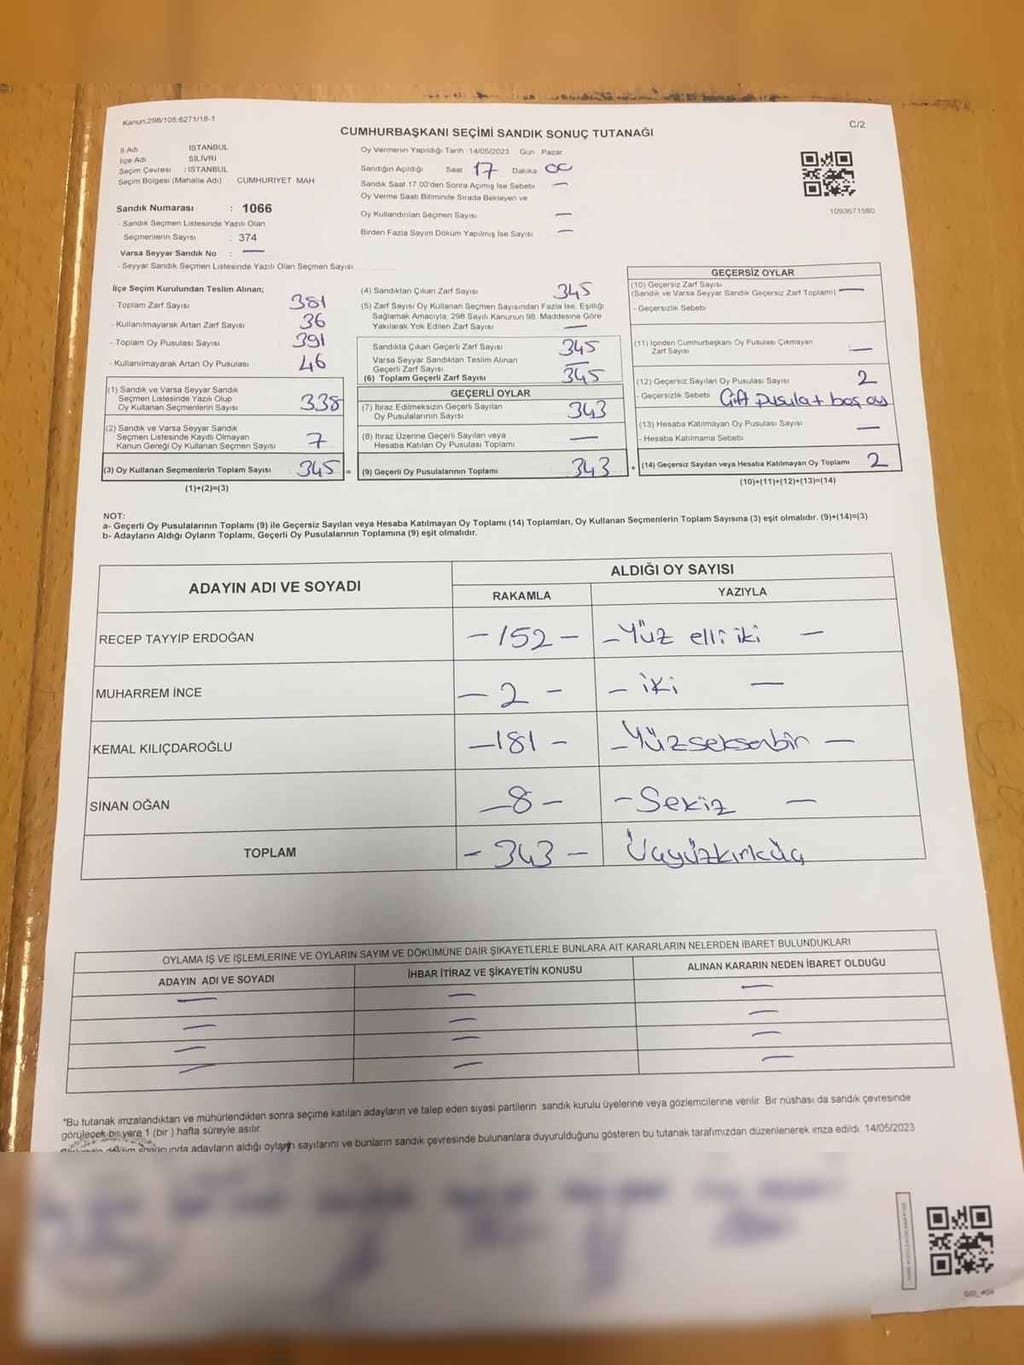 Kanun:298/105;6271/18-1
C/2
CUMHURBAŞKANI SEÇİMİ SANDIK SONUÇ TUTANAĞI
İl Adı İSTANBUL
İlçe Adı SİLİVRİ
Seçim Çevresi : İSTANBUL
Seçim Bölgesi (Mahalle Adı) CUMHURİYET MAH
Sandık Numarası : 1066
- Sandık Seçmen Listesinde Yazılı Olan
Seçmenlerin Sayısı : 374
Varsa Seyyar Sandık No : —
- Seyyar Sandık Seçmen Listesinde Yazılı Olan Seçmen Sayısı
Oy Vermenin Yapıldığı Tarih :14/05/2023 Gün Pazar
Sandığın Açıldığı Saat 17 Dakika 00
Sandık Saat 17.00'den Sonra Açılmış İse Sebebi —
Oy Verme Saati Bitiminde Sırada Bekleyen ve
Oy Kullandırılan Seçmen Sayısı —
Birden Fazla Sayım Döküm Yapılmış İse Sayısı —
1093671580
İlçe Seçim Kurulundan Teslim Alınan;
- Toplam Zarf Sayısı 381
- Kullanılmayarak Artan Zarf Sayısı 36
- Toplam Oy Pusulası Sayısı 391
- Kullanılmayarak Artan Oy Pusulası 46
(1) Sandık ve Varsa Seyyar Sandık
Seçmen Listesinde Yazılı Olup
Oy Kullanan Seçmenlerin Sayısı 338
(2) Sandık ve Varsa Seyyar Sandık
Seçmen Listesinde Kayıtlı Olmayan
Kanun Gereği Oy Kullanan Seçmen Sayısı 7
(3) Oy Kullanan Seçmenlerin Toplam Sayısı 345 =
(1)+(2)=(3)
(4) Sandıktan Çıkan Zarf Sayısı 345
(5) Zarf Sayısı Oy Kullanan Seçmen Sayısından Fazla İse, Eşitliği
Sağlamak Amacıyla, 298 Sayılı Kanunun 98. Maddesine Göre
Yakılarak Yok Edilen Zarf Sayısı —
Sandıkta Çıkan Geçerli Zarf Sayısı 345
Varsa Seyyar Sandıktan Teslim Alınan
Geçerli Zarf Sayısı —
(6) Toplam Geçerli Zarf Sayısı 345
GEÇERLİ OYLAR
(7) İtiraz Edilmeksizin Geçerli Sayılan
Oy Pusulalarının Sayısı 343
(8) İtiraz Üzerine Geçerli Sayılan veya
Hesaba Katılan Oy Pusulası Toplamı —
(9) Geçerli Oy Pusulalarının Toplamı 343 +
GEÇERSİZ OYLAR
(10) Geçersiz Zarf Sayısı
(Sandık ve Varsa Seyyar Sandık Geçersiz Zarf Toplamı) —
- Geçersizlik Sebebi
(11) İçinden Cumhurbaşkanı Oy Pusulası Çıkmayan
Zarf Sayısı —
(12) Geçersiz Sayılan Oy Pusulası Sayısı 2
- Geçersizlik Sebebi Çift pusula + boş oy
(13) Hesaba Katılmayan Oy Pusulası Sayısı —
- Hesaba Katılmama Sebebi
(14) Geçersiz Sayılan veya Hesaba Katılmayan Oy Toplamı 2
(10)+(11)+(12)+(13)=(14)
NOT:
a- Geçerli Oy Pusulalarının Toplamı (9) ile Geçersiz Sayılan veya Hesaba Katılmayan Oy Toplamı (14) Toplamları, Oy Kullanan Seçmenlerin Toplam Sayısına (3) eşit olmalıdır. (9)+(14)=(3)
b- Adayların Aldığı Oyların Toplamı, Geçerli Oy Pusulalarının Toplamına (9) eşit olmalıdır.
ADAYIN ADI VE SOYADI
ALDIĞI OY SAYISI
RAKAMLA YAZIYLA
RECEP TAYYİP ERDOĞAN – 152 – – Yüz elli iki —
MUHARREM İNCE – 2 – – iki —
KEMAL KILIÇDAROĞLU – 181 – – Yüzseksenbir —
SİNAN OĞAN – 8 – – Sekiz —
TOPLAM – 343 – Üçyüzkırküç
OYLAMA İŞ VE İŞLEMLERİNE VE OYLARIN SAYIM VE DÖKÜMÜNE DAİR ŞİKAYETLERLE BUNLARA AİT KARARLARIN NELERDEN İBARET BULUNDUKLARI
ADAYIN ADI VE SOYADI İHBAR İTİRAZ VE ŞİKAYETİN KONUSU ALINAN KARARIN NEDEN İBARET OLDUĞU
— — —
— — —
— — —
— — —
*Bu tutanak imzalandıktan ve mühürlendikten sonra seçime katılan adayların ve talep eden siyasi partilerin sandık kurulu üyelerine veya gözlemcilerine verilir. Bir nüshası da sandık çevresinde
görülecek bir yere 1 (bir ) hafta süreyle asılır.
adayların aldığı oyların sayılarını ve bunların sandık çevresinde bulunanlara duyurulduğunu gösteren bu tutanak tarafımızdan düzenlenerek imza edildi. 14/05/2023